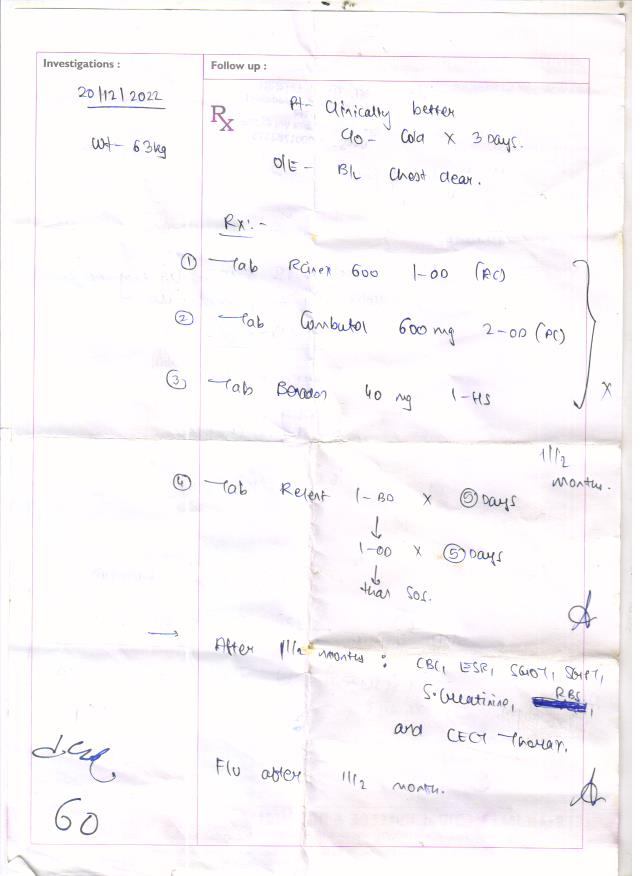 Investigations :
Follow up :
20/12/2022
Wt- 63kg
Rx
Pt- Clinically better
C/o- Cold x 3 Days.
O/E - B/L Chest clear.
Rx:-
① Tab Rcinex 600 1-OD (AC)
② Tab Combutol 600 mg 2-OD (PC)
③ Tab Benadon 40 mg 1-HS
x
1 1/2
months.
④ Tab Relent 1-BD x ⑤ Days
↓
1-OD x ⑤ Days
↓
than SOS.
→ After 1 1/2 months : CBC, ESR, SGOT, SGPT,
S. Creatinine, RBS,
and CECT Thorax.
F/u after 1 1/2 month.
60